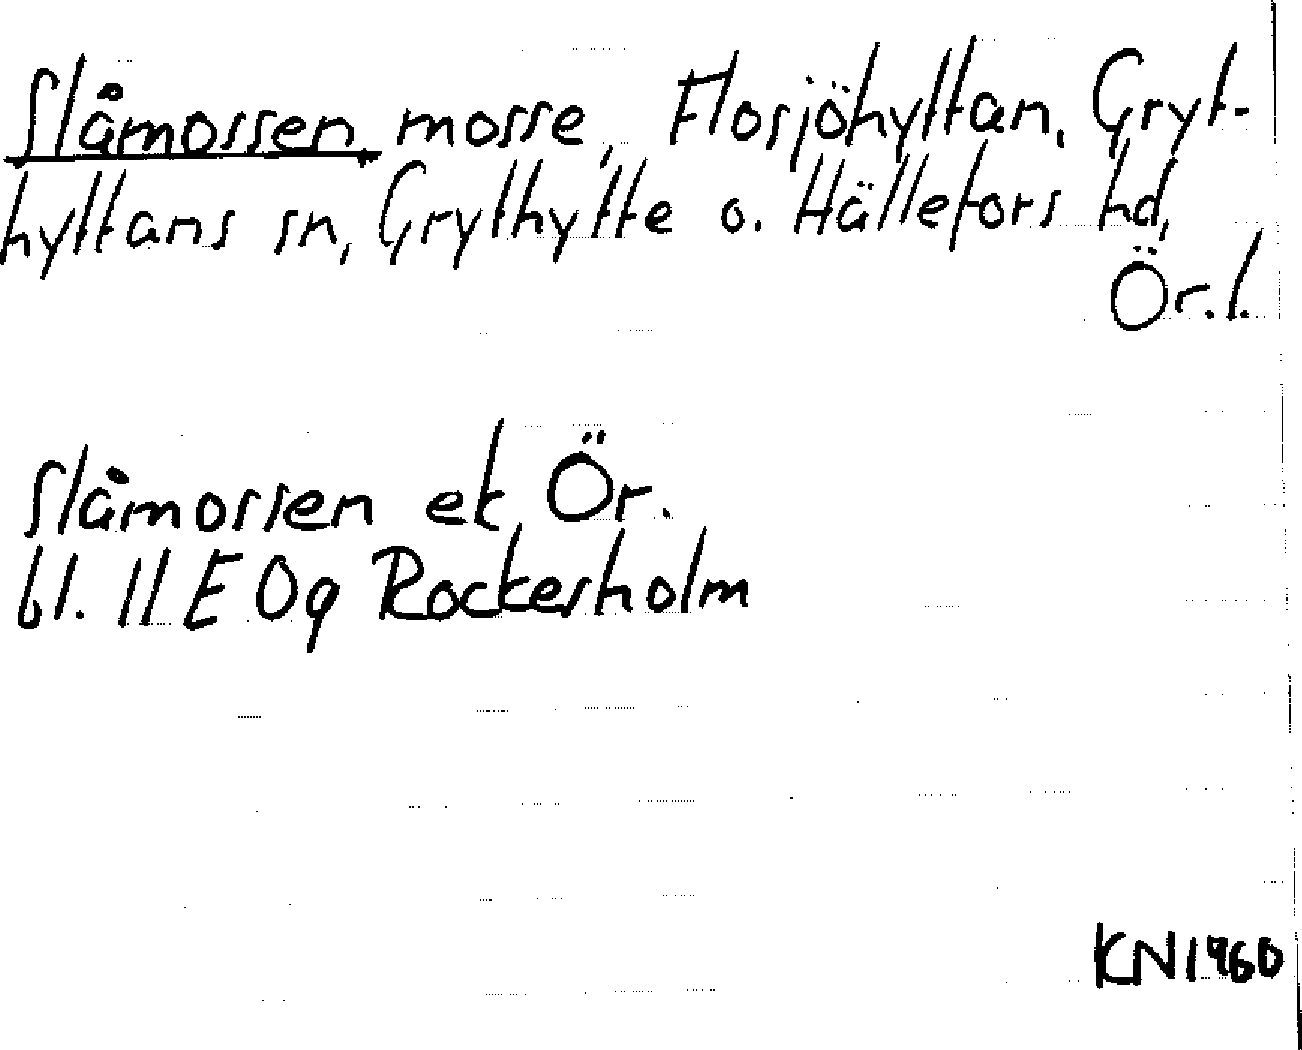 Slåmossen, mosse, Flosjöhyttan, Gryt-
hyttans sn, Grythytte o. Hällefors hd,
Ör. l.
Slåmossen ek Ör.
bl. 11 E 0q Rockesholm
KN1960